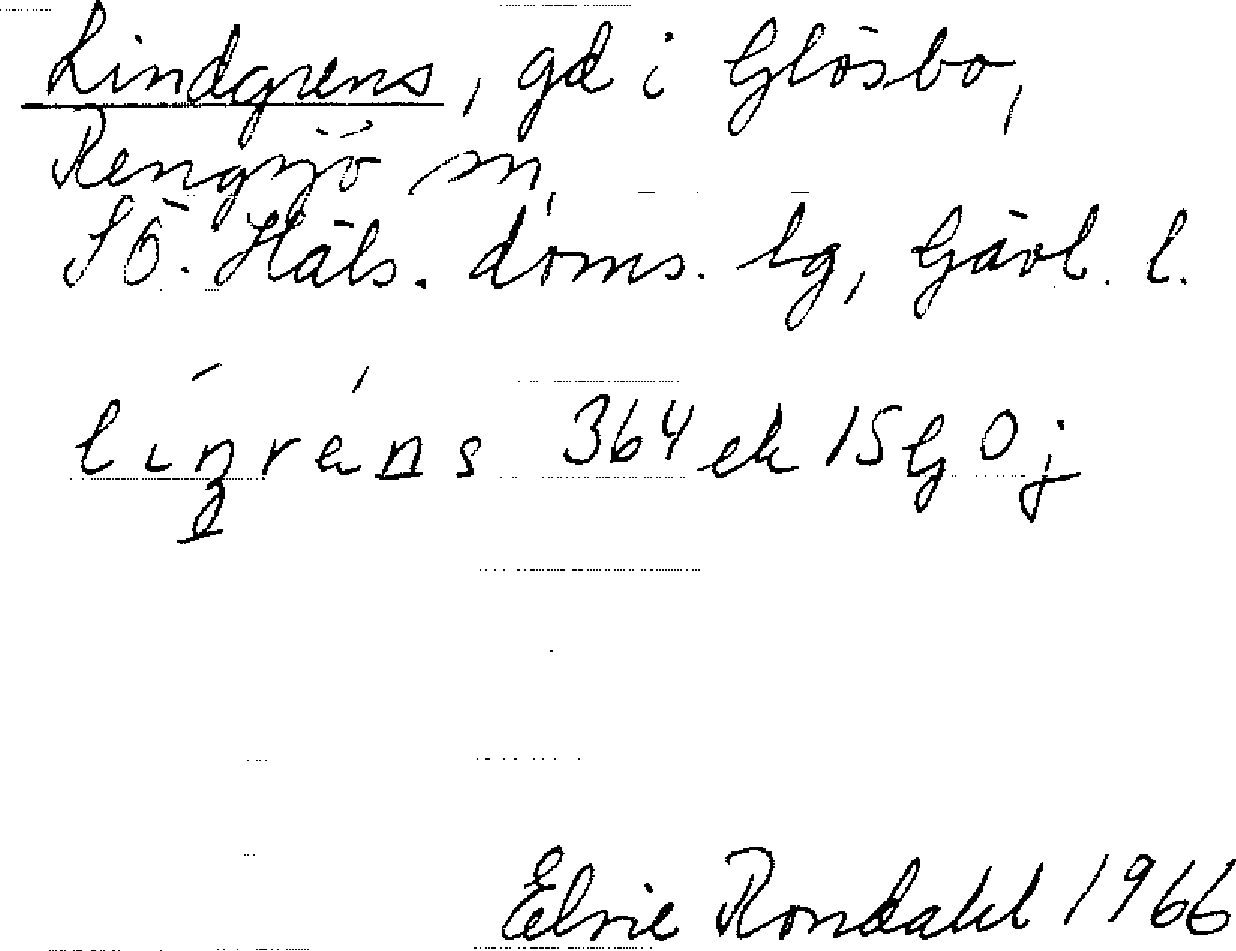 Lindgrens, gd i Glösbo,
Rengsjö sn,
SÖ. Häls. doms. lg, Gävl. l.
lıngréns 364 ek 15G Oj
Elvie Rondahl 1966